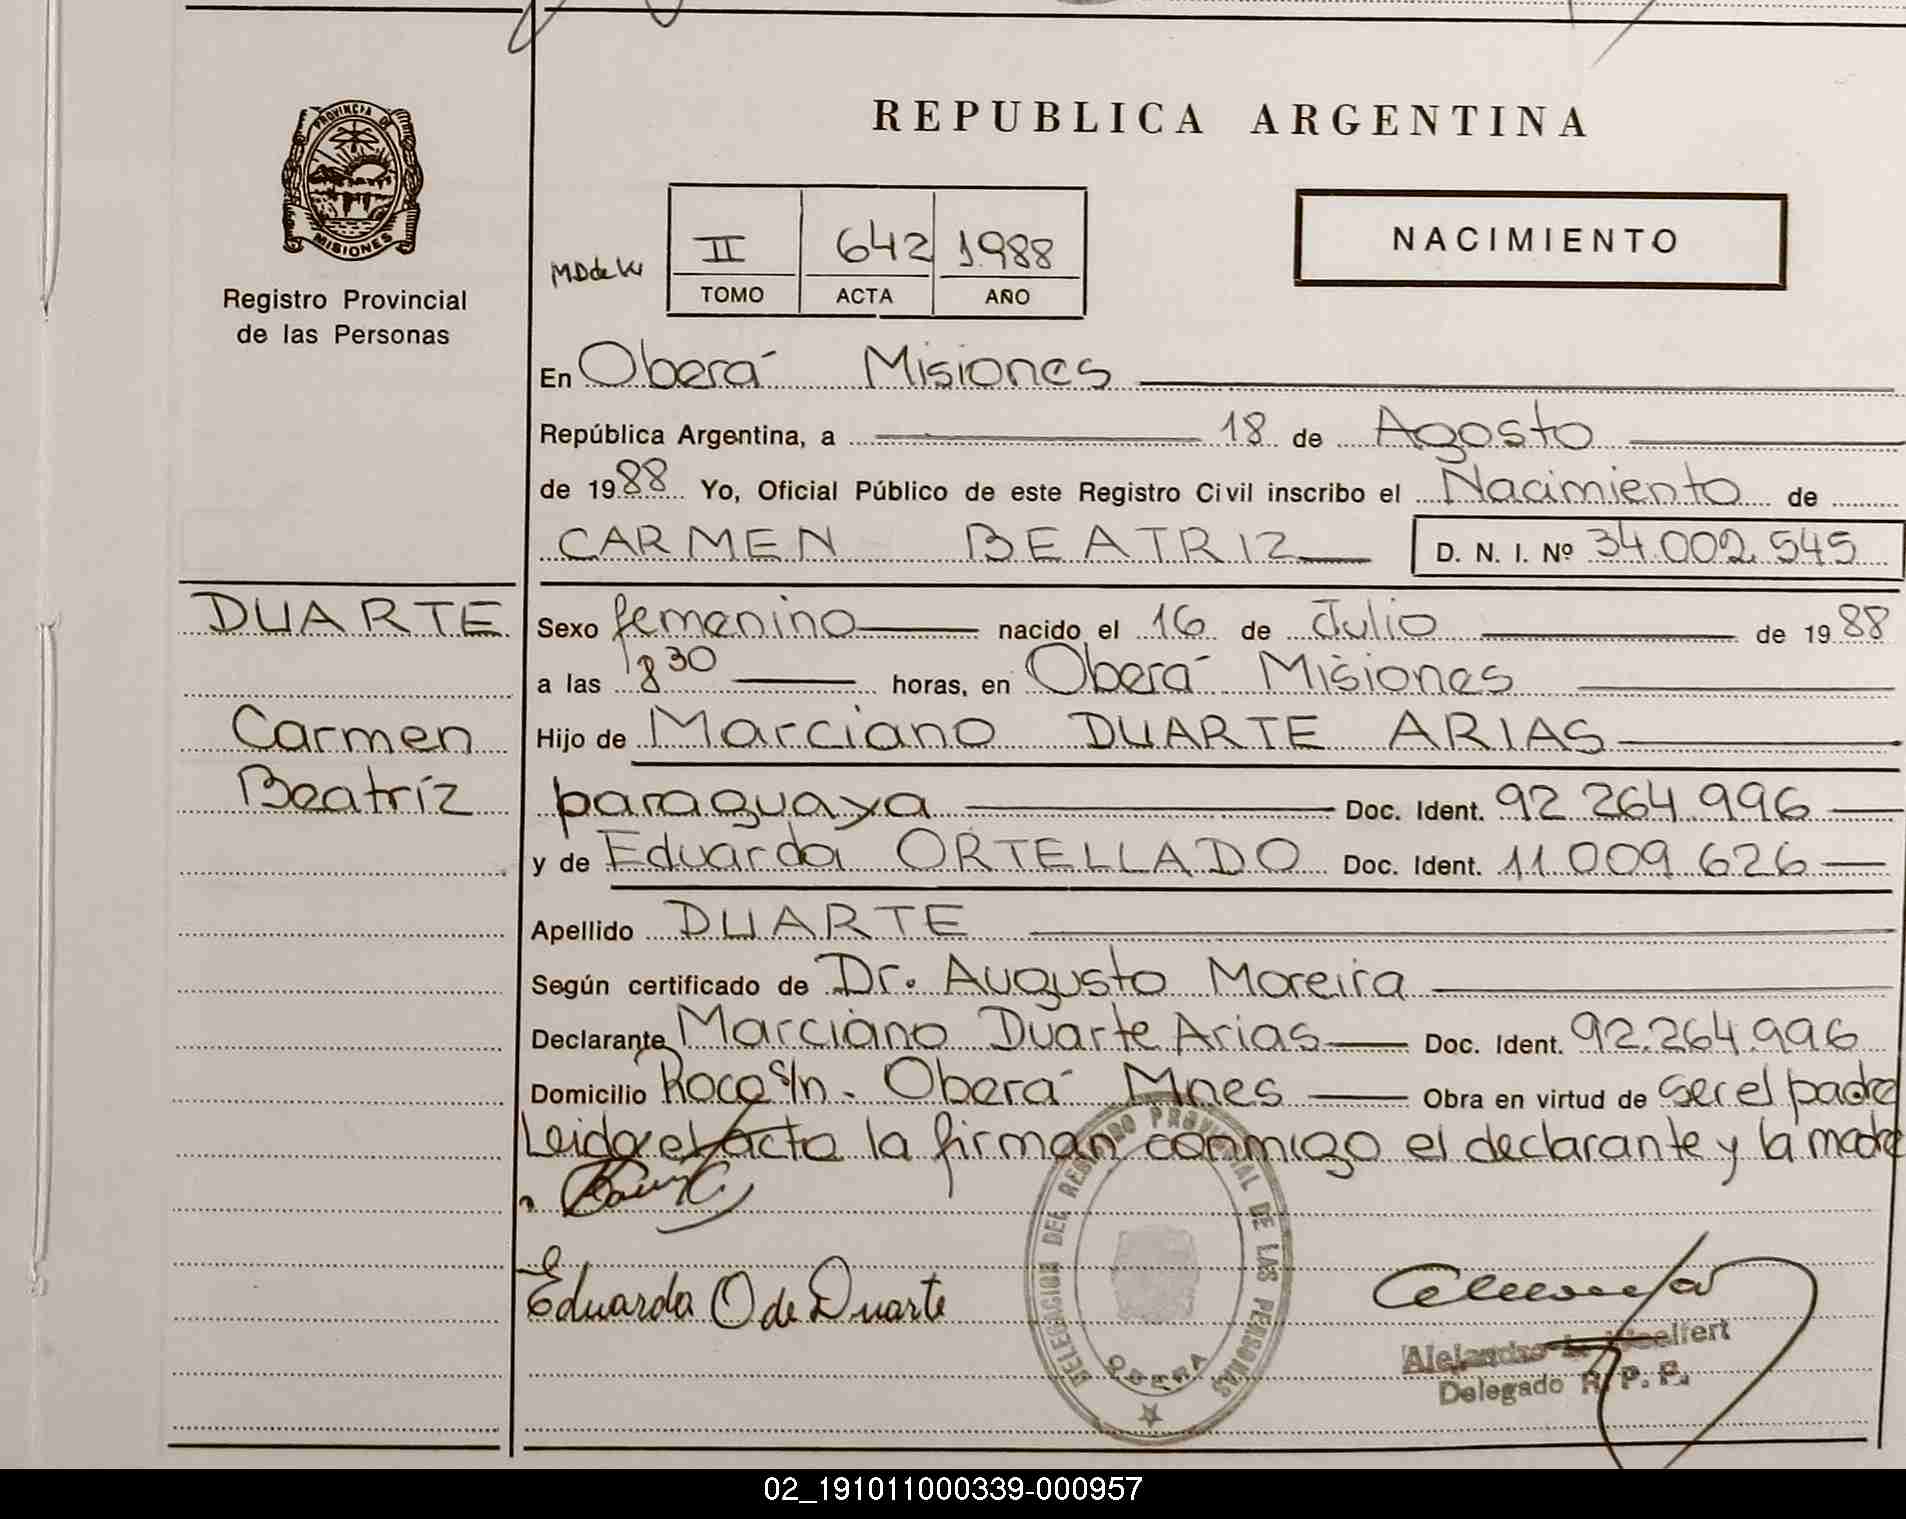 REPUBLICA ARGENTINA
PROVINCIA DE
MISIONES
Registro Provincial
de las Personas
II 642 1988
TOMO ACTA AÑO
NACIMIENTO
En Oberá Misiones
República Argentina, a 18 de Agosto
de 1988 Yo, Oficial Público de este Registro Civil inscribo el Nacimiento de
CARMEN BEATRIZ D. N. I. Nº 34.002.545
DUARTE
Carmen
Beatríz
Sexo femenino nacido el 16 de Julio de 1988
a las 8 30 horas, en Oberá Misiones
Hijo de Marciano DUARTE ARIAS
paraguaya Doc. Ident. 92.264.996
y de Eduarda ORTELLADO Doc. Ident. 11.009.626
Apellido DUARTE
Según certificado de Dr. Augusto Moreira
Declarante Marciano Duarte Arias Doc. Ident. 92.264.996
Domicilio Roca S/n. Oberá Mnes Obra en virtud de ser el padre
Leida el acta la firman conmigo el declarante y la madre
Eduarda O de Duarte
DELEGACION DEL REGISTRO PROVINCIAL DE LAS PERSONAS
OBERA
Delegado R. P. P.
02_191011000339-000957